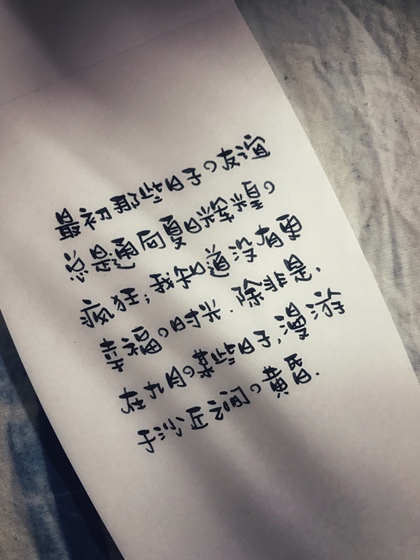 最初那些日子の友谊
总是通向夏日辉煌の
疯狂；我知道没有更
幸福の时光．除非是，
在九月の某些日子，漫游
于沙丘之间の黄昏．